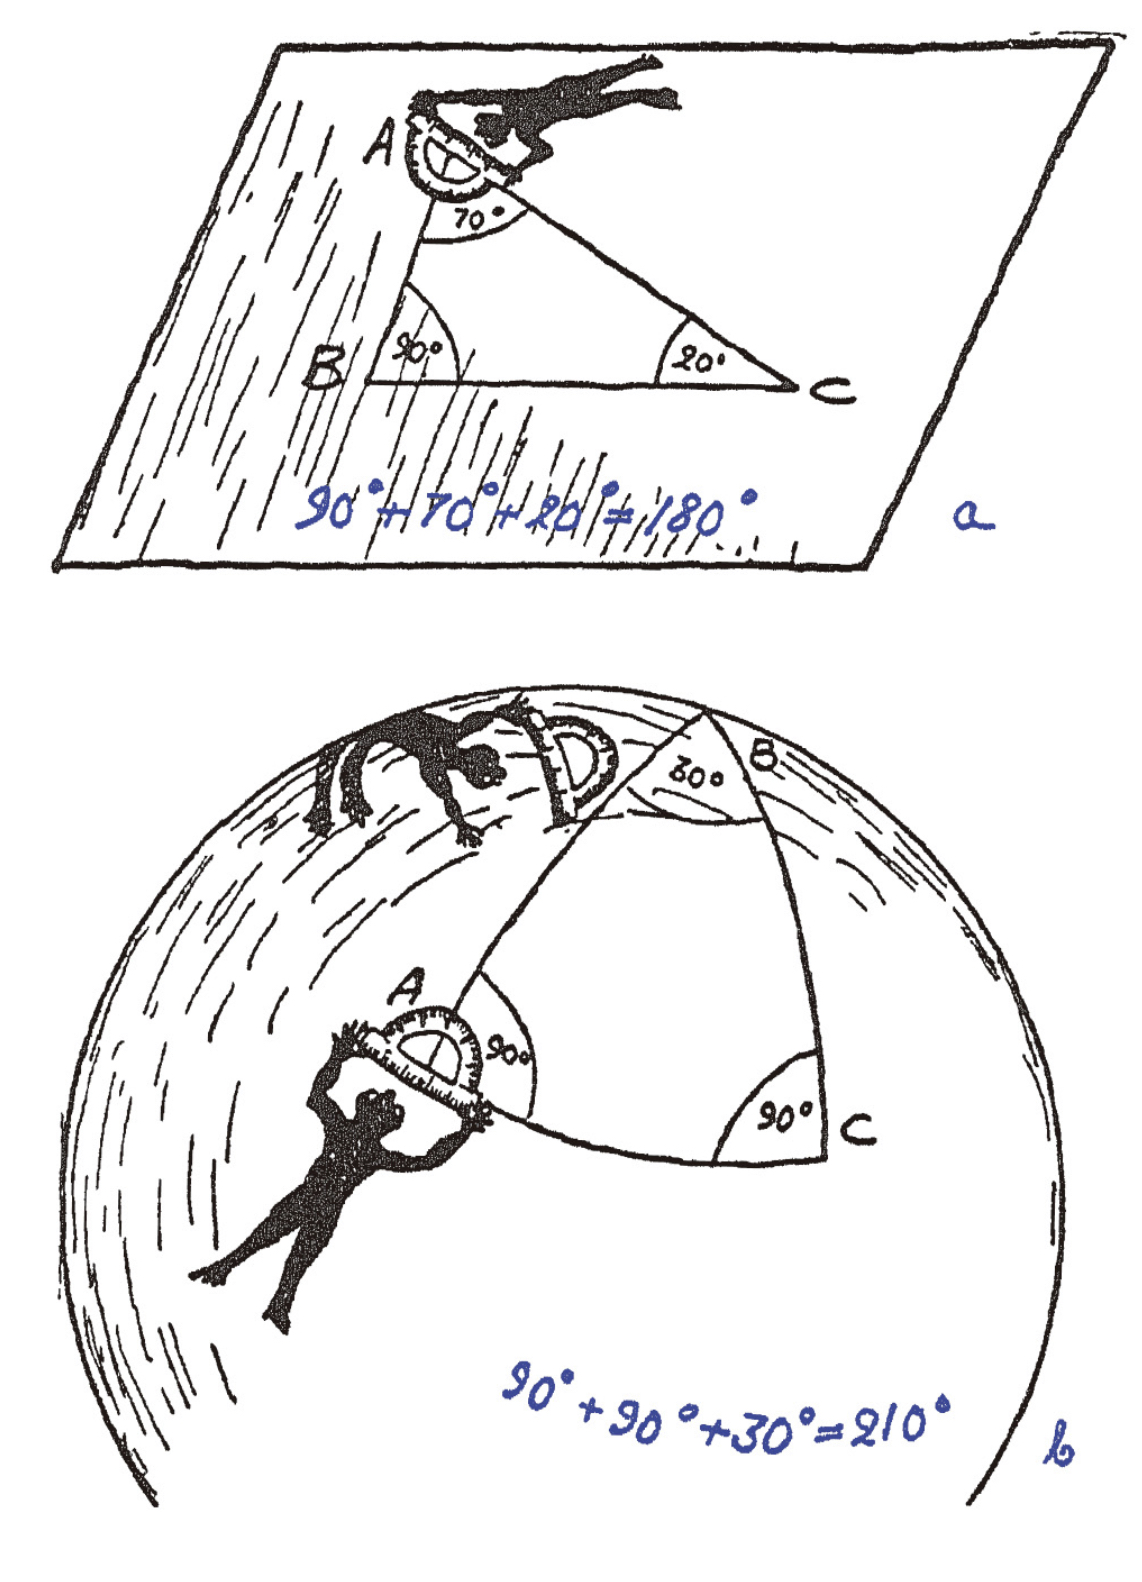 A
70°
90°
20°
B
C
90°+70°+20°=180°
a
B
30°
A
90°
90°
C
90°+90°+30°=210°
b